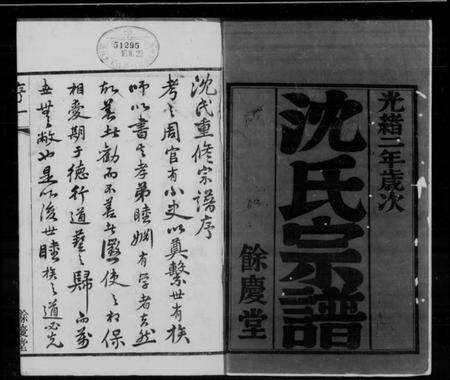 光緒二年歲次
沈氏宗譜
餘慶堂
沈氏重修宗譜序
考之周官有小史以奠繫世有族
師以書其孝弟睦婣有學者哀然
故善者勸而不善者懲使之相保
相愛期于德行道藝之歸而萬
世無敝也是以後世睦族之道必先
序一
餘慶堂
51295